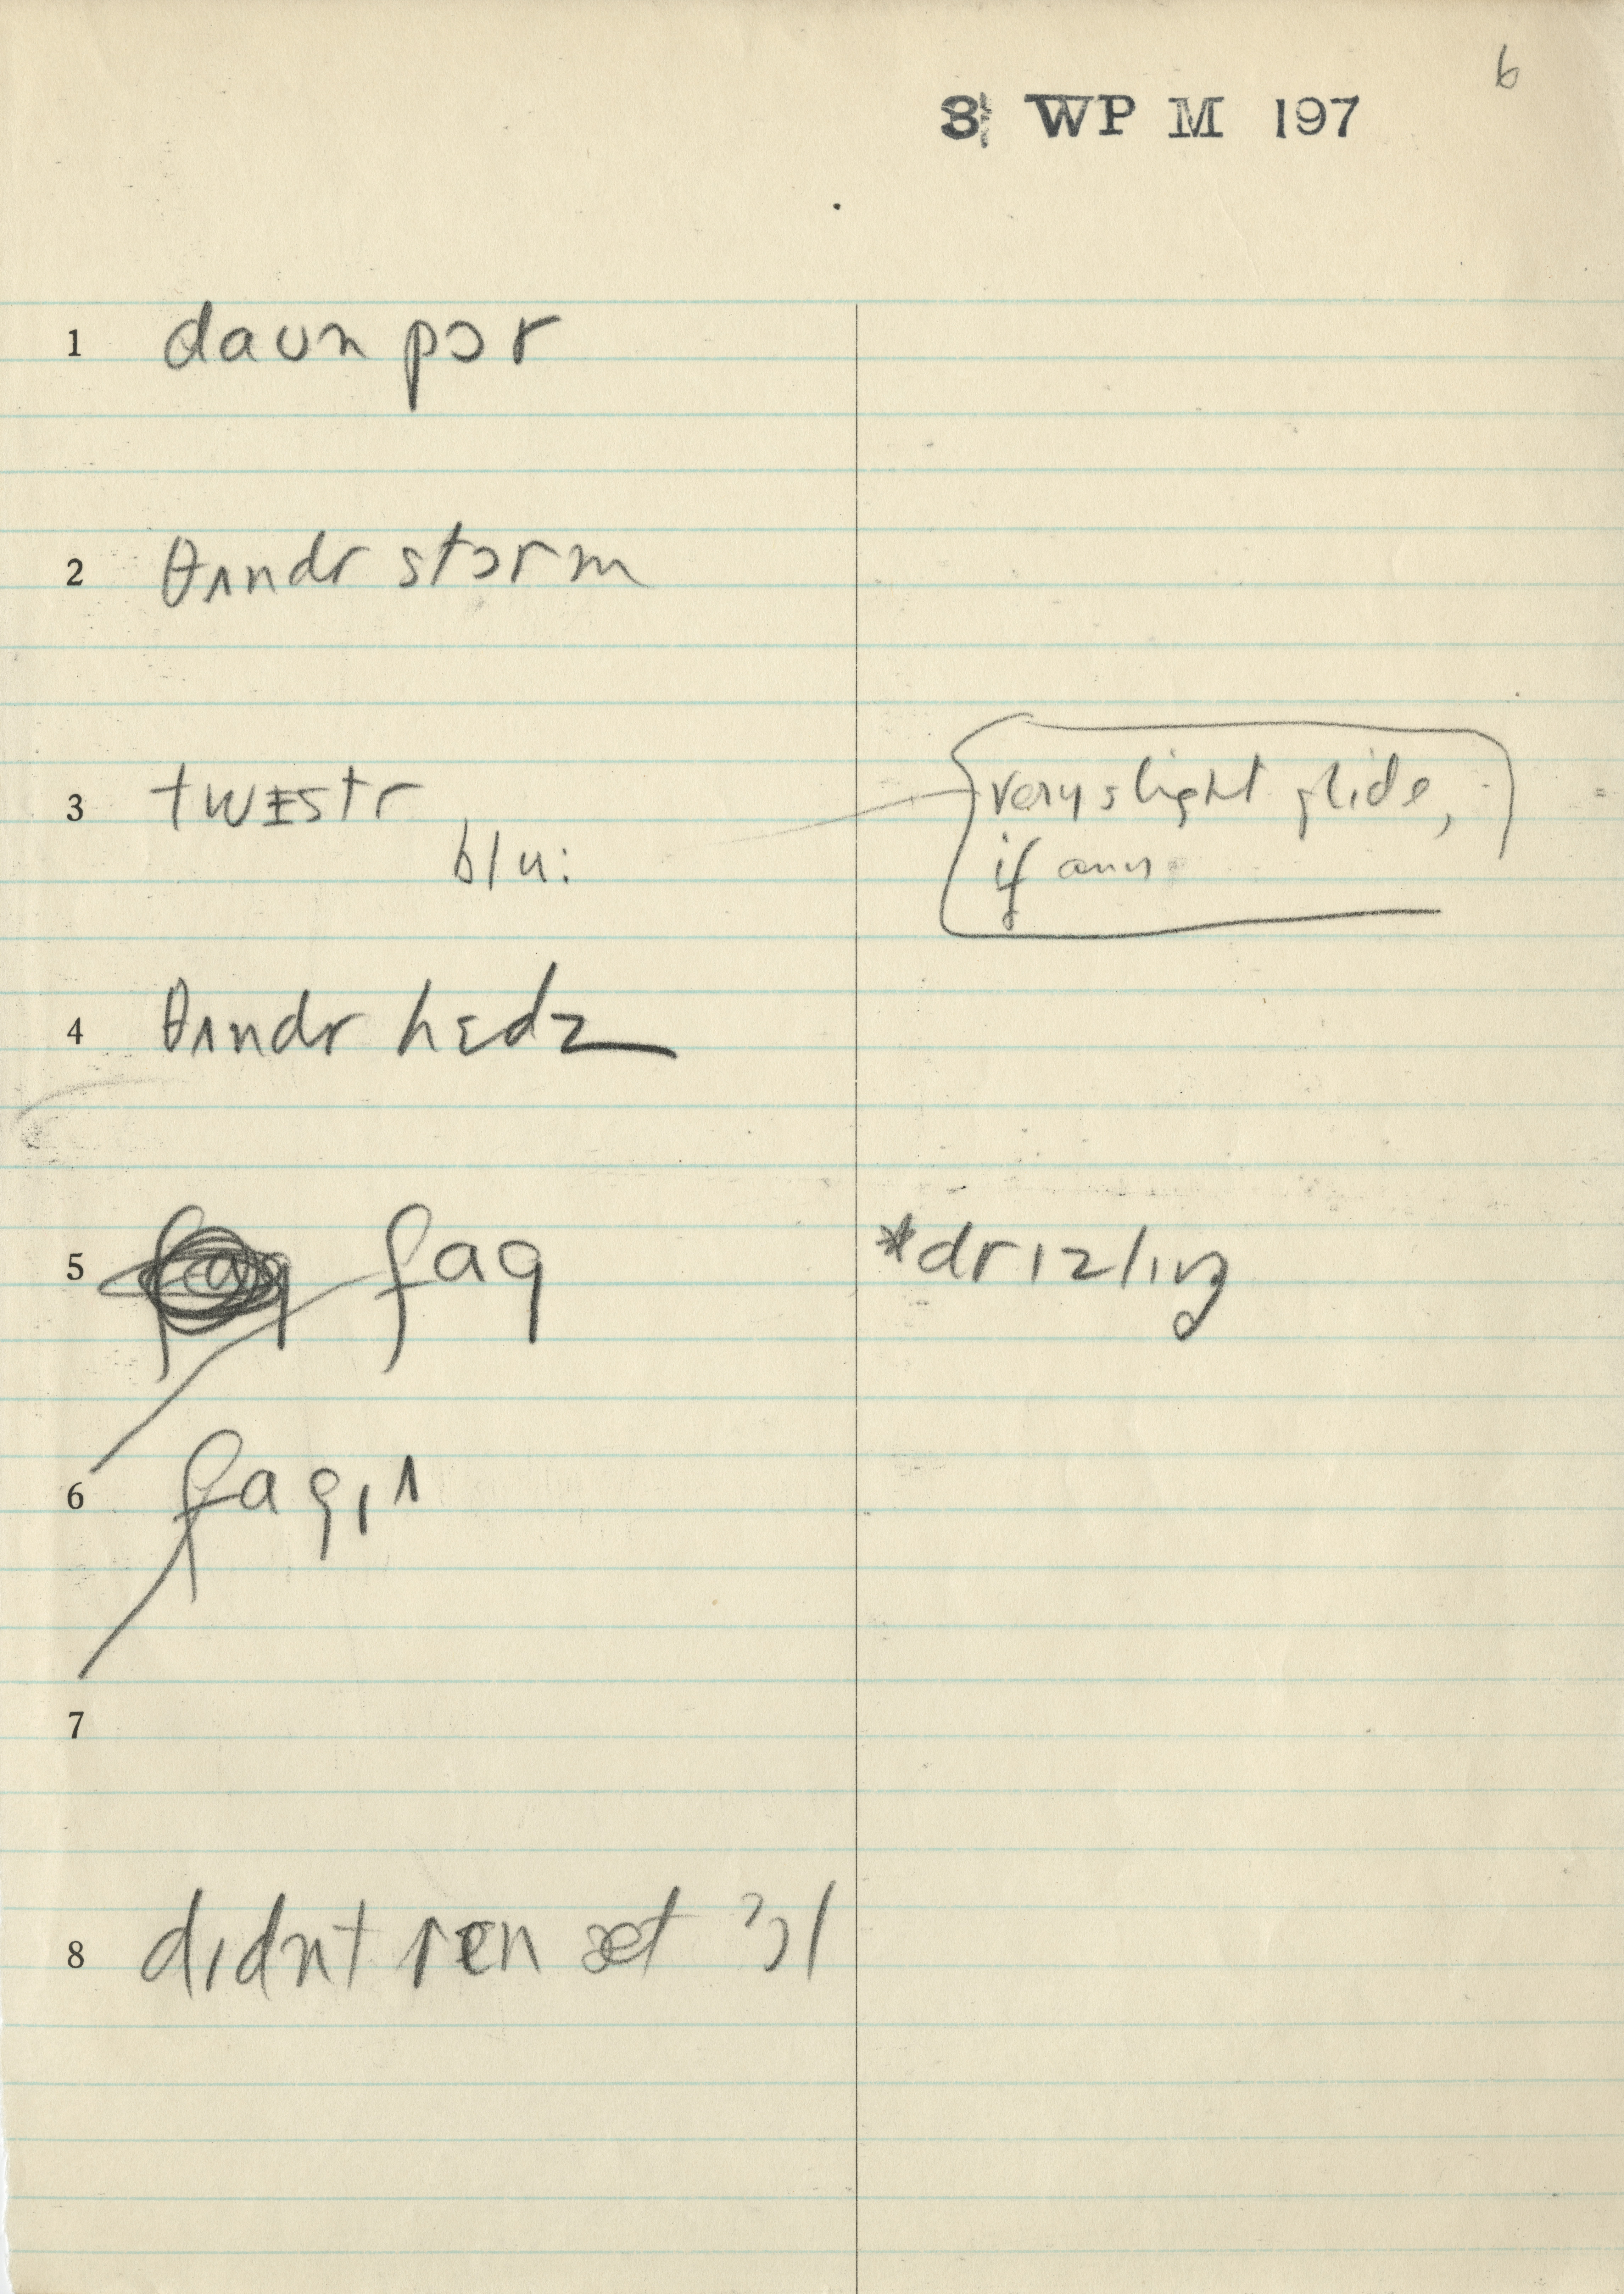 6
8 WP M 197
1 daʊn pɔr
2 θʌndr stɔrm
3 twɪstr
very slight glide,
blu:
if any
4 θʌndr hɛdz
5 fag
*drɪzlɪŋ
6 fagɪʌ
7
8 dɪdnt ren æt ɔl